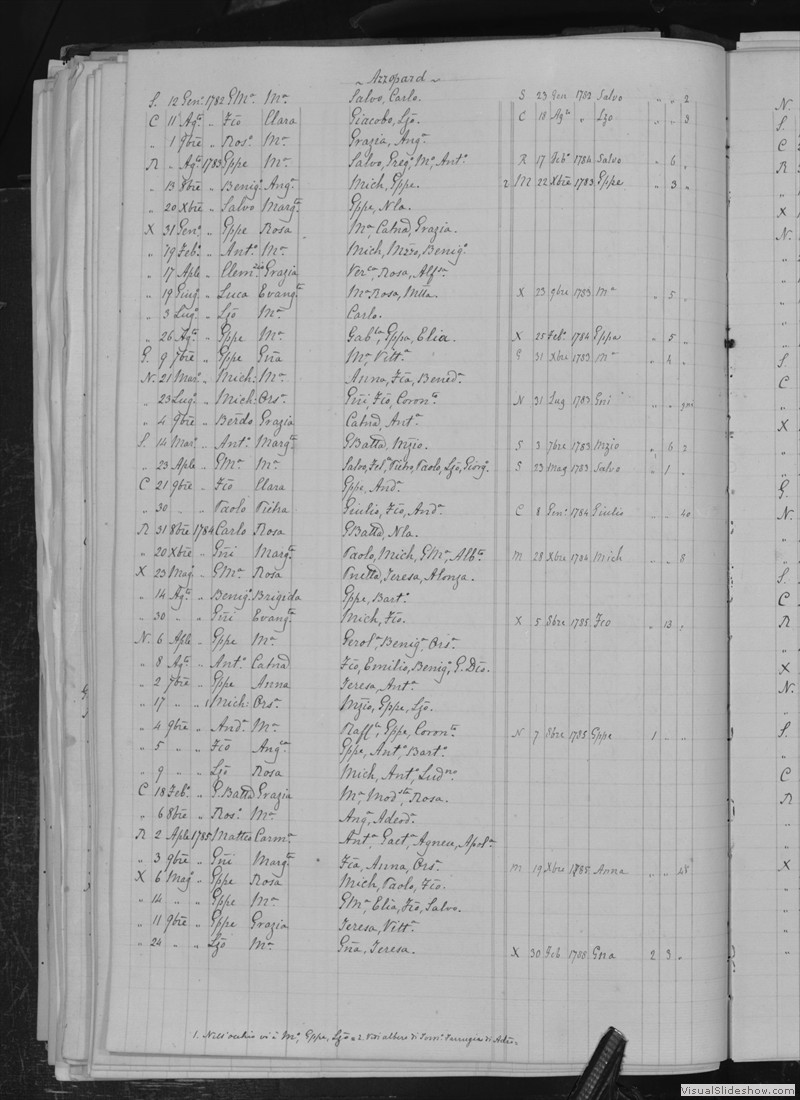 ~ Azzopard ~
S. 12 Gen.º 1782 GMª Mª Salvo, Carlo. S 23 Gen 1782 Salvo „ „ 2
C 11 Agº „ Fīō Clara Giacobo, Ljō. C 18 Agº „ Ljō „ „ 8
„ 1 9bre „ Rosº Mª Grazia, Angª
R „ Agº 1783 Gppe Mª Salvo, Gregº, Mª, Antº R 17 Febº 1784 Salvo „ 6 „
„ 13 8bre „ Benigº Angª Mich, Gppe. 2 M 22 Xbre 1783 Gppe „ 3 „
„ 20 Xbre „ Salvo Margª Gppe, Nla.
X 31 Genº „ Gppe Rosa Mª, Catnā, Grazia.
„ 19 Febº „ Antº Mª Mich, Mzzo, Benigº
„ 17 Aple „ Clem Grazia Rosa,
„ 19 Giugº „ Luca Evangª Mª Rosa, X 23 9bre 1783 Mª „ 5 „
„ 3 Lugº „ Ljō Mª Carlo.
„ 26 Agº „ Gppe Mª Gabª, Gppa, Elia. X 25 Febº 1784 Gppa „ 5 „
G. 9 7bre „ Gppe Gña Mª, Vittª G 31 Xbre 1783 Mª „ 4 „
N. 21 Marº „ Mich: Mª Anna, Fīā, Benedª
„ 23 Lugº „ Mich: Orsª Gñi, Fīō, Coronª N 31 Lug 1783 Gni „ „
„ 4 9bre „ Berdō Grazia Catnā, Antª
S. 14 Marº „ Antº Margª GBatta, Mzio. S 3 7bre 1783 Mzio „ 6 2
„ 23 Aple „ GMª Mª Salvo, Felº, Pietro, Paolo, Ljō, Giorgº S 23 Mag 1783 Salvo „ 1 „
C 21 9bre „ Fīō Clara Gppe, Andª
„ 30 „ „ Paolo Pietra Giulio, Fīō, Andª C 8 Genº 1784 Giulio „ „ 40
R 31 8bre 1784 Carlo Rosa GBatta, Nla.
„ 20 Xbre „ Gñi Margª Paolo, Mich, GMª, Albª M 28 Xbre 1784 Mich „ „ 8
X 23 Mag „ GMª Rosa Pnetta, Teresa, Alonza.
„ 14 Agº „ Benigº Brigida Gppe, Bartº
„ 30 „ „ Gñi Evangª Mich, Fīō. X 5 8bre 1785 Fīō „ 13 „
N. 6 Aple „ Gppe Mª Gerolª, Benignª, Orsª
„ 8 Agº „ Antº Catnā Fīō, Emilio, Benigº, G. Dīō.
„ 2 7bre „ Gppe Anna Teresa, Antª
„ 17 „ „ 1 Mich: Orsª Mzio, Gppe, Ljō.
„ 4 9bre „ Andª Mª Raffª, Gppe, Coronª N 7 8bre 1785 Gppe 1 „ „
„ 5 „ „ Fīō Angª Gppe, Antº, Bartº
„ 9 „ „ Ljō Rosa Mich, Antº, Ludco
C 18 Febº „ G. Batta Grazia Mª, Modª, Rosa.
„ 6 8bre „ Rosº Mª Angª, Adeodº
R 2 Aple 1785 Matteo Carmª Antª, Gaetº, Agnese, Apolª
„ 3 9bre „ Gñi Margª Fīā, Anna, Orsª M 19 Xbre 1785 Anna „ „ 48
X 6 Mag „ Gppe Rosa Mich, Paolo, Fīō.
„ 14 „ „ Gppe Mª GMª, Elia, Fīō, Salvo.
„ 11 9bre „ Gppe Grazia Teresa, Vittª
„ 24 „ „ Ljō Mª Gña, Teresa. X 30 Feb 1788 Gna 2 3 „
1. Nell'occhio vi è Mª, Gppe, Ljō 2 Vedi albero di
N.
S.
C
R
X
N.
S.
C
X
G.
N.
S.
C
R
X
N.
S.
C
R
X
VisualSlideshow.com